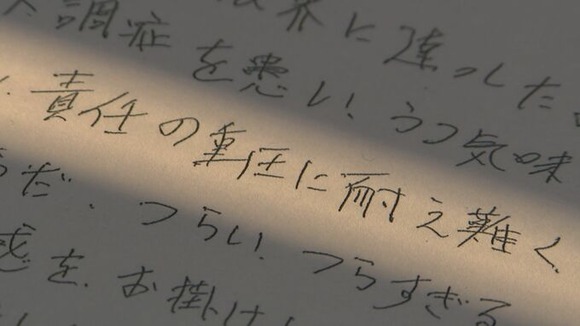 調症を患い、うつ気味
界に達した
責任の重圧に耐え難く、
だ、つらい、つらすぎる
惑を、お掛け